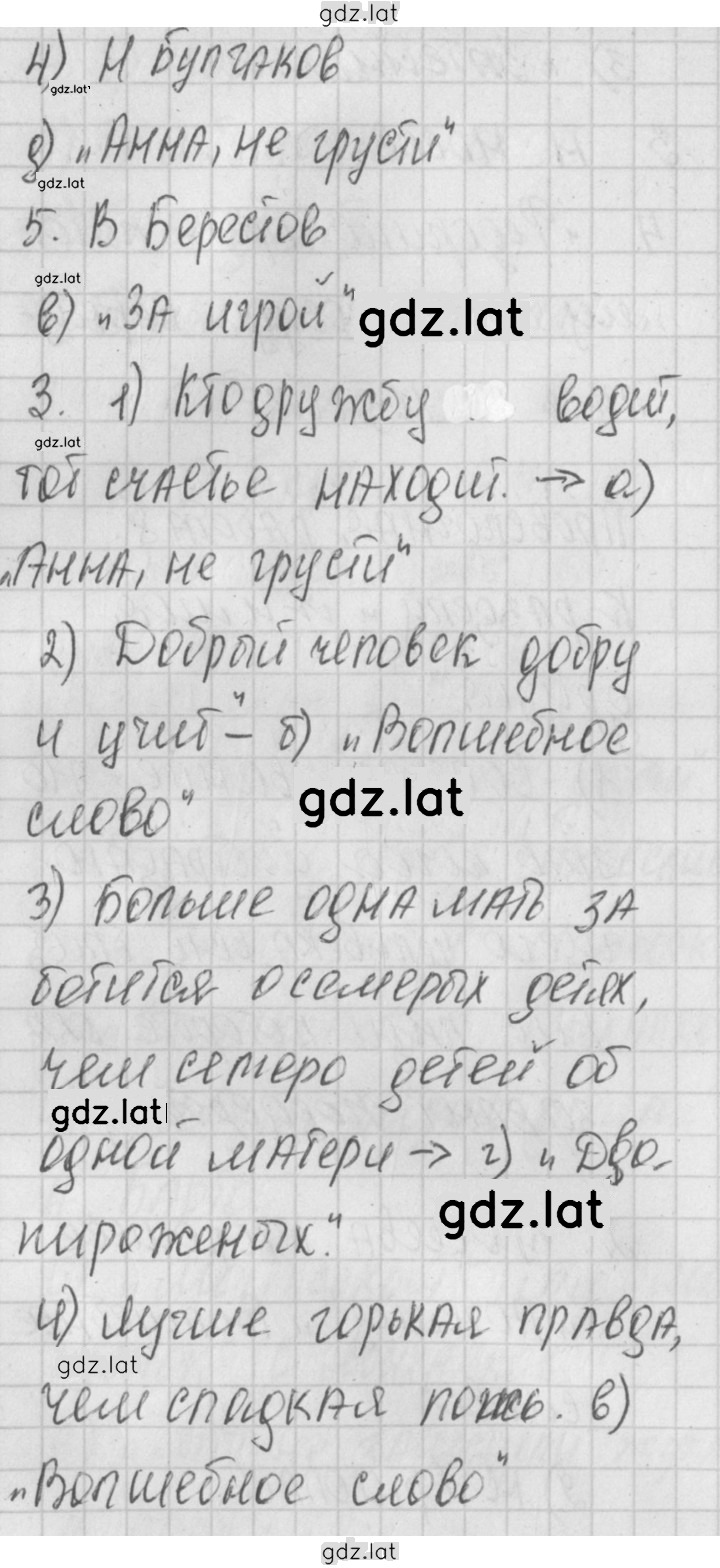 gdz.lat
4) Н Булгаков
gdz.lat
д) „Анна, не грусти“
gdz.lat
5. В Берестов
gdz.lat
в) „За игрой“ gdz.lat
3. 1) Кто дружбу водит,
gdz.lat
тот счастье находит. → а)
„Анна, не грусти“
2) Добрый человек добру
и учит“ – б) „Волшебное
слово“ gdz.lat
3) Больше одна мать за
ботится о семерых детях,
чем семеро детей об
gdz.lat
одной матери → г) „Два-
gdz.lat
пироженых.“
4) Лучше горькая правда,
gdz.lat
чем сладкая ложь. в)
„Волшебное слово“
gdz.lat